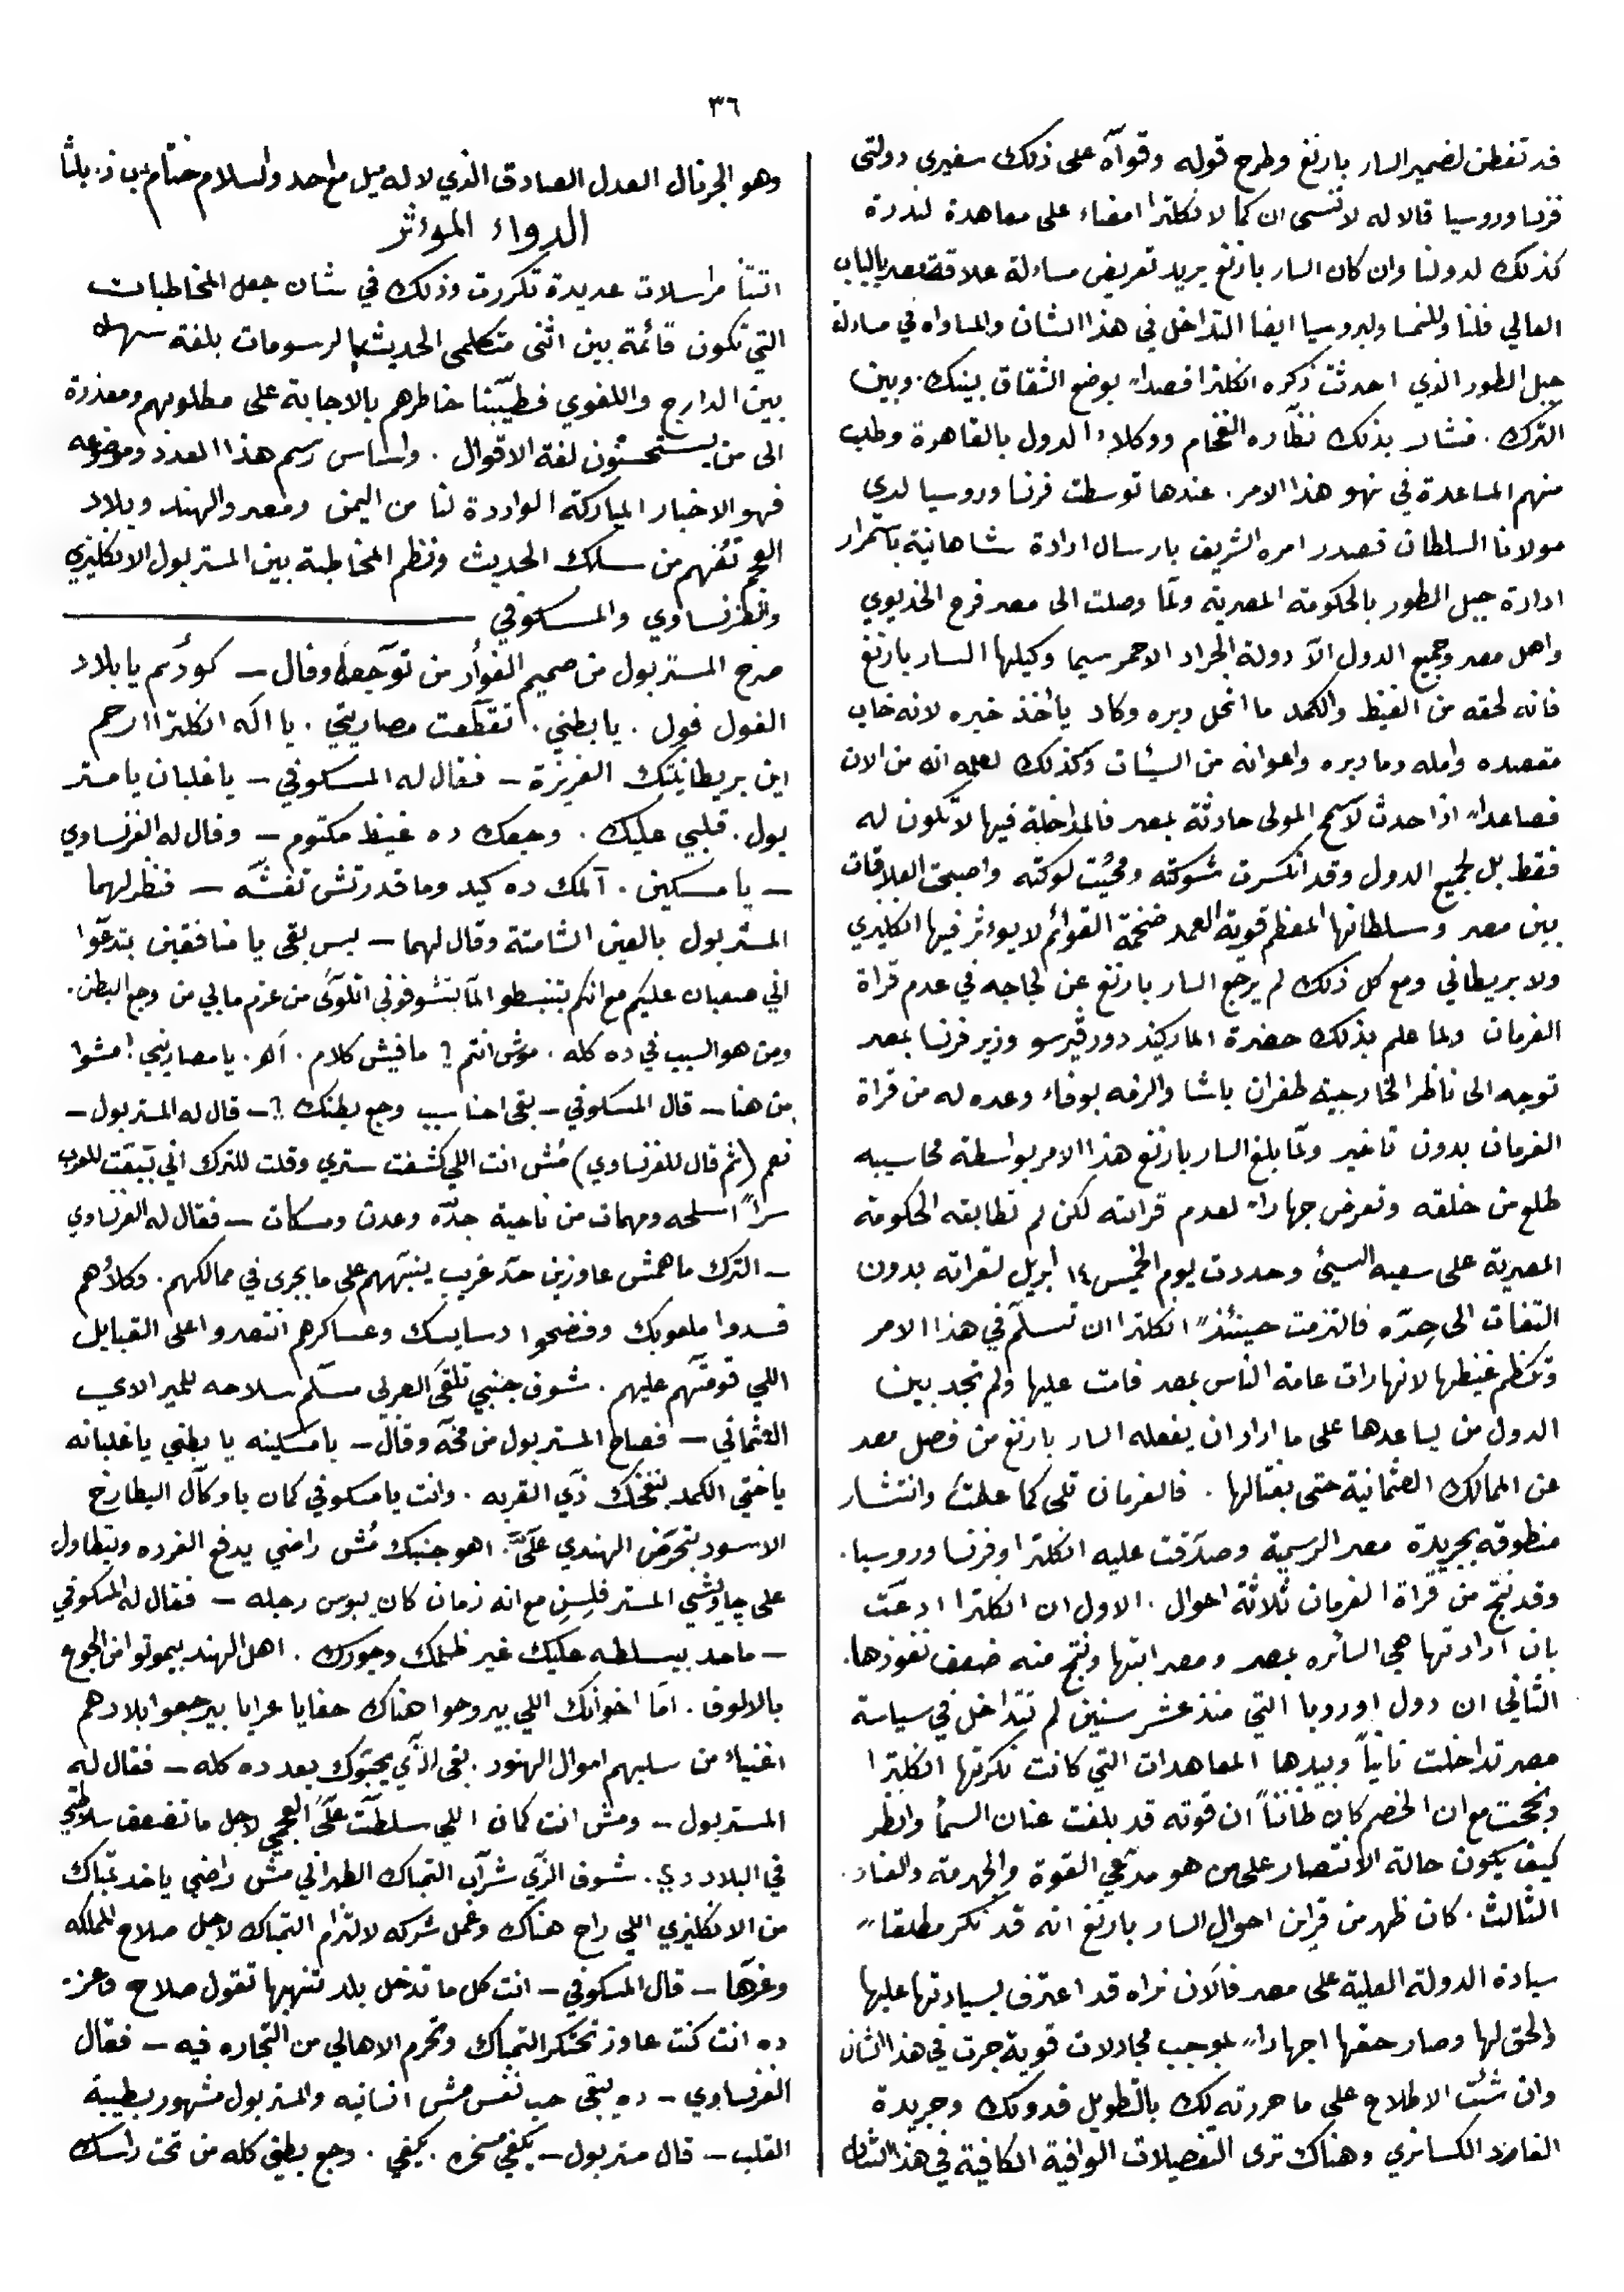 ٣٦
قد تفطن لضمير السار بارنغ وطرح قوله وقواه على ذلك سفيرى دولتى
فرنسا وروسيا قالا له لا تنسى ان كما لانكلترا امضاء على معاهدة لندرة
كذلك لدولنا وان كان السار بارنغ يريد تعريض مساءلة علاقة مصر بالباب
العالي فلنا وللنمسا ولبروسيا ايضا التداخل في هذا الشان والمساواه في مسادلة
جبل الطور الذي احدثت ذكره انكلترا قصداً بوضع الشقاق بينك وبين
الترك . فشار بذلك نظاره الفخام ووكلاء الدول بالقاهرة وطلب
منهم المساعدة في نهو هذا الامر . عندها توسطت فرنسا وروسيا لدي
مولانا السلطان فصدر امره الشريف بارسال ارادة شاهانية باستمرار
ادارة جبل الطور بالحكومة المصرية ولما وصلت الى مصر فرح الخديوي
واهل مصر وجميع الدول الا دولة الجراد الاحمر سيما وكيلها السار بارنغ
فانه لحقه من الغيظ والكمد ما انحل وبره وكاد ياخذ خبره لانه خاب
مقصده وامله وما دبره واعوانه من السيئات وكذلك لعلمه انه من الان
فصاعداً اذا حدث لا سمح المولى حادثة بمصر فالمداخلة فيها لا تكون له
فقط بل لجميع الدول وقد انكسرت شوكته ومحيت لوكته واصبحت العلاقات
بين مصر وسلطانها المعظم قوية العمد ضخمة القوائم لا يوءثر فيها انكليزي
ولا بريطاني ومع كل ذلك لم يرجع السار بارنغ عن لجاجه في عدم قراة
الفرمان ولما علم بذلك حضرة الماركيز دورفرسو وزير فرنسا بمصر
توجه الى ناظر الخارجية طغران باشا والزمه بوفاء وعده له من قراة
الفرمان بدون تاخير ولما بلغ السار بارنغ هذا الامر بواسطة محاسيبه
طلع من خلقه وتعرض جهاراً لعدم قرائته لكن لم تطابقه الحكومة
المصرية على سعيه السيئ وحددت يوم الخميس ١٤ ابريل لقراته بدون
التفات الى حدّه فالتزمت حينئذ انكلترا ان تسلّم في هذا الامر
وتكظم غيظها لانها رات عامة الناس بمصر قامت عليها ولم تجد بين
الدول من يساعدها على ما اراد ان يفعله السار بارنغ من فصل مصر
عن الممالك العثمانية حتى يغتالها . فالفرمان تلى كما علمت وانتشار
منطوقه بجريدة مصر الرسمية وصدّقت عليه انكلترا وفرنسا وروسيا .
وقد نتج من قراة الفرمان ثلاثة احوال . الاول ان انكلترا ادعت
بان ارادتها هي السائره بمصر ومصر ابتها ونتج منه ضعف نفوذها .
الثاني ان دول اوروبا التي منذ عشر سنين لم تتداخل في سياسة
مصر تداخلت ثانياً وبيدها المعاهدات التي كانت نكرتها انكلترا
ونجحت مع ان الخصم كان ظاناً ان قوته قد بلغت عنان السماء وانظر
كيف يكون حالة الانتصار على من هو مدعي القوة والحرمة والعناد .
الثالث . كان ظهر من قراين احوال السار بارنغ انه قد نكر مطلقاً
سيادة الدولة العلية على مصر فالان نراه قد اعترف بسيادتها عليها
والحق لها وصار حقها اجهاراً بموجب مجادلات قوية جرت في هذا الشان
وان شئت الاطلاع على ما حررته لك بالتطويل فدونك وجريدة
الفارد الكسانري وهناك ترى التفصيلات الوافية الكافية في هذا الشان
وهو الجرنال العدل الصادق الذي لا له ميل مع احد والسلام ختام ب ز . بلتا
الدواء الموءثر
اتتنا مراسلات عديدة تكررت وذلك في شان جعل المخاطبات
التي تكون قائمة بين اثنى متكلمى الحديث بالرسومات بلغة سهله
بين الدارج واللغوي فطيّبنا خاطرهم بالاجابة على مطلوبهم ومعذرة
الى من يستحسنون لغة الاقوال . واساس رسم هذا العدد وموضوعه
فهو الاخبار المباركة الواردة لنا من اليمن ومصر والهند وبلاد
العجم تفهم من سلك الحديث ونظم المخاطبة بين المستر بول الانكليزي
والفرنساوي والمسكوفي
صرخ المستر بول من صميم الفواد من توجعه وقال – كودّم يا بلاد
الفول فول . يا بطني . اتقطّعت مصاريني . يا اله انكلترا ارحم
ابن بريطانيتك العزيزة – فقال له المسكوفي – يا غلبان يا مستر
بول . قلبي عليك . وجعك ده غيظ مكتوم – وقال له الفرنساوي
– يا مسكين . آلمك ده كيد وما قدرتش تفشّه – فنظر لهما
المستر بول بالعين الشامتة وقال لهما – بس بقى يا منافقين بتدعّوا
اني صعبان عليكم مع انكم بتنبسطوا لما بتشوفوني اتلوّى من عزم ما بي من وجع البطن .
ومن هو السبب في ده كله . موش انتم ؟ ما فيش كلام . آه . يا مصاريني ! امشوا
من هنا – قال المسكوفي – بقى احنا سبب وجع بطنك ؟ – قال له المستر بول –
نعم ( ثم قال للفرنساوي ) مُش انت اللي كشفت ستري وقلت للترك اني بتبعت للعرب
سراً اسلحه ومهمات من ناحية جدّه وعدن ومسكات – فقال له الفرنساوي
– الترك ما همش عاوزين حدّ غريب ينبّههم على ما يجرى في ممالكهم . وكلاؤهم
فسدوا ملعوبك وفضحوا دسايسك وعساكرهم انتصروا على القبايل
اللي قومتهم عليهم . شوف جنبي تلقى العربي مسلّم سلاحه للمير الاي
العثماني – فصاح المستر بول من مخه وقال – يا مسكينه يا بطني يا غلبانه
ياختي الكمد نفخك زي القربه . وانت يا مسكوفي كمان يا وكّال البطارخ
الاسود بتحرّض الهندي عليّ . اهو جنبك مُش راضي يدفع الفرده ويتطاول
على چاويشي المستر فلسن مع انه زمان كان يبوس رجله – فقال له المسكوفي
– ماحد بيسلطه عليك غير ظلمك وجورك . اهل الهند بيموتوا من الجوع
بالالوف . اما اخوانك اللي بيروحوا هناك حفايا عرايا بيرجعوا بلادهم
اغنياء من سلبهم اموال الهنود . بقى ازّي يحبّوك بعد ده كله – فقال له
المستر بول – ومش انت كمان اللي سلطت علَيّ العجمي لاجل ما تضعف سلاطتي
في البلاد دي . شوف ازّي شرّاب التمباك الطهراني مش راضي ياخد تمباك
من الانكليزي اللي راح هناك وعمل شركه لالتزام التمباك لاجل صلاح المملكه
وعزّها – قال المسكوفي – انت كل ما تدخل بلد تنهبها تقول صلاح وعز .
ده انت كنت عاوز تحتكر التمباك وتحرم الاهالي من التجاره فيه – فقال
الفرنساوي – ده يبقى حب نفس مش انسانيه والمستر بول مشهور بطيبة
القلب – قال مستر بول – يكفي مسخره . يكفي . وجع بطني كله من تحت راسك